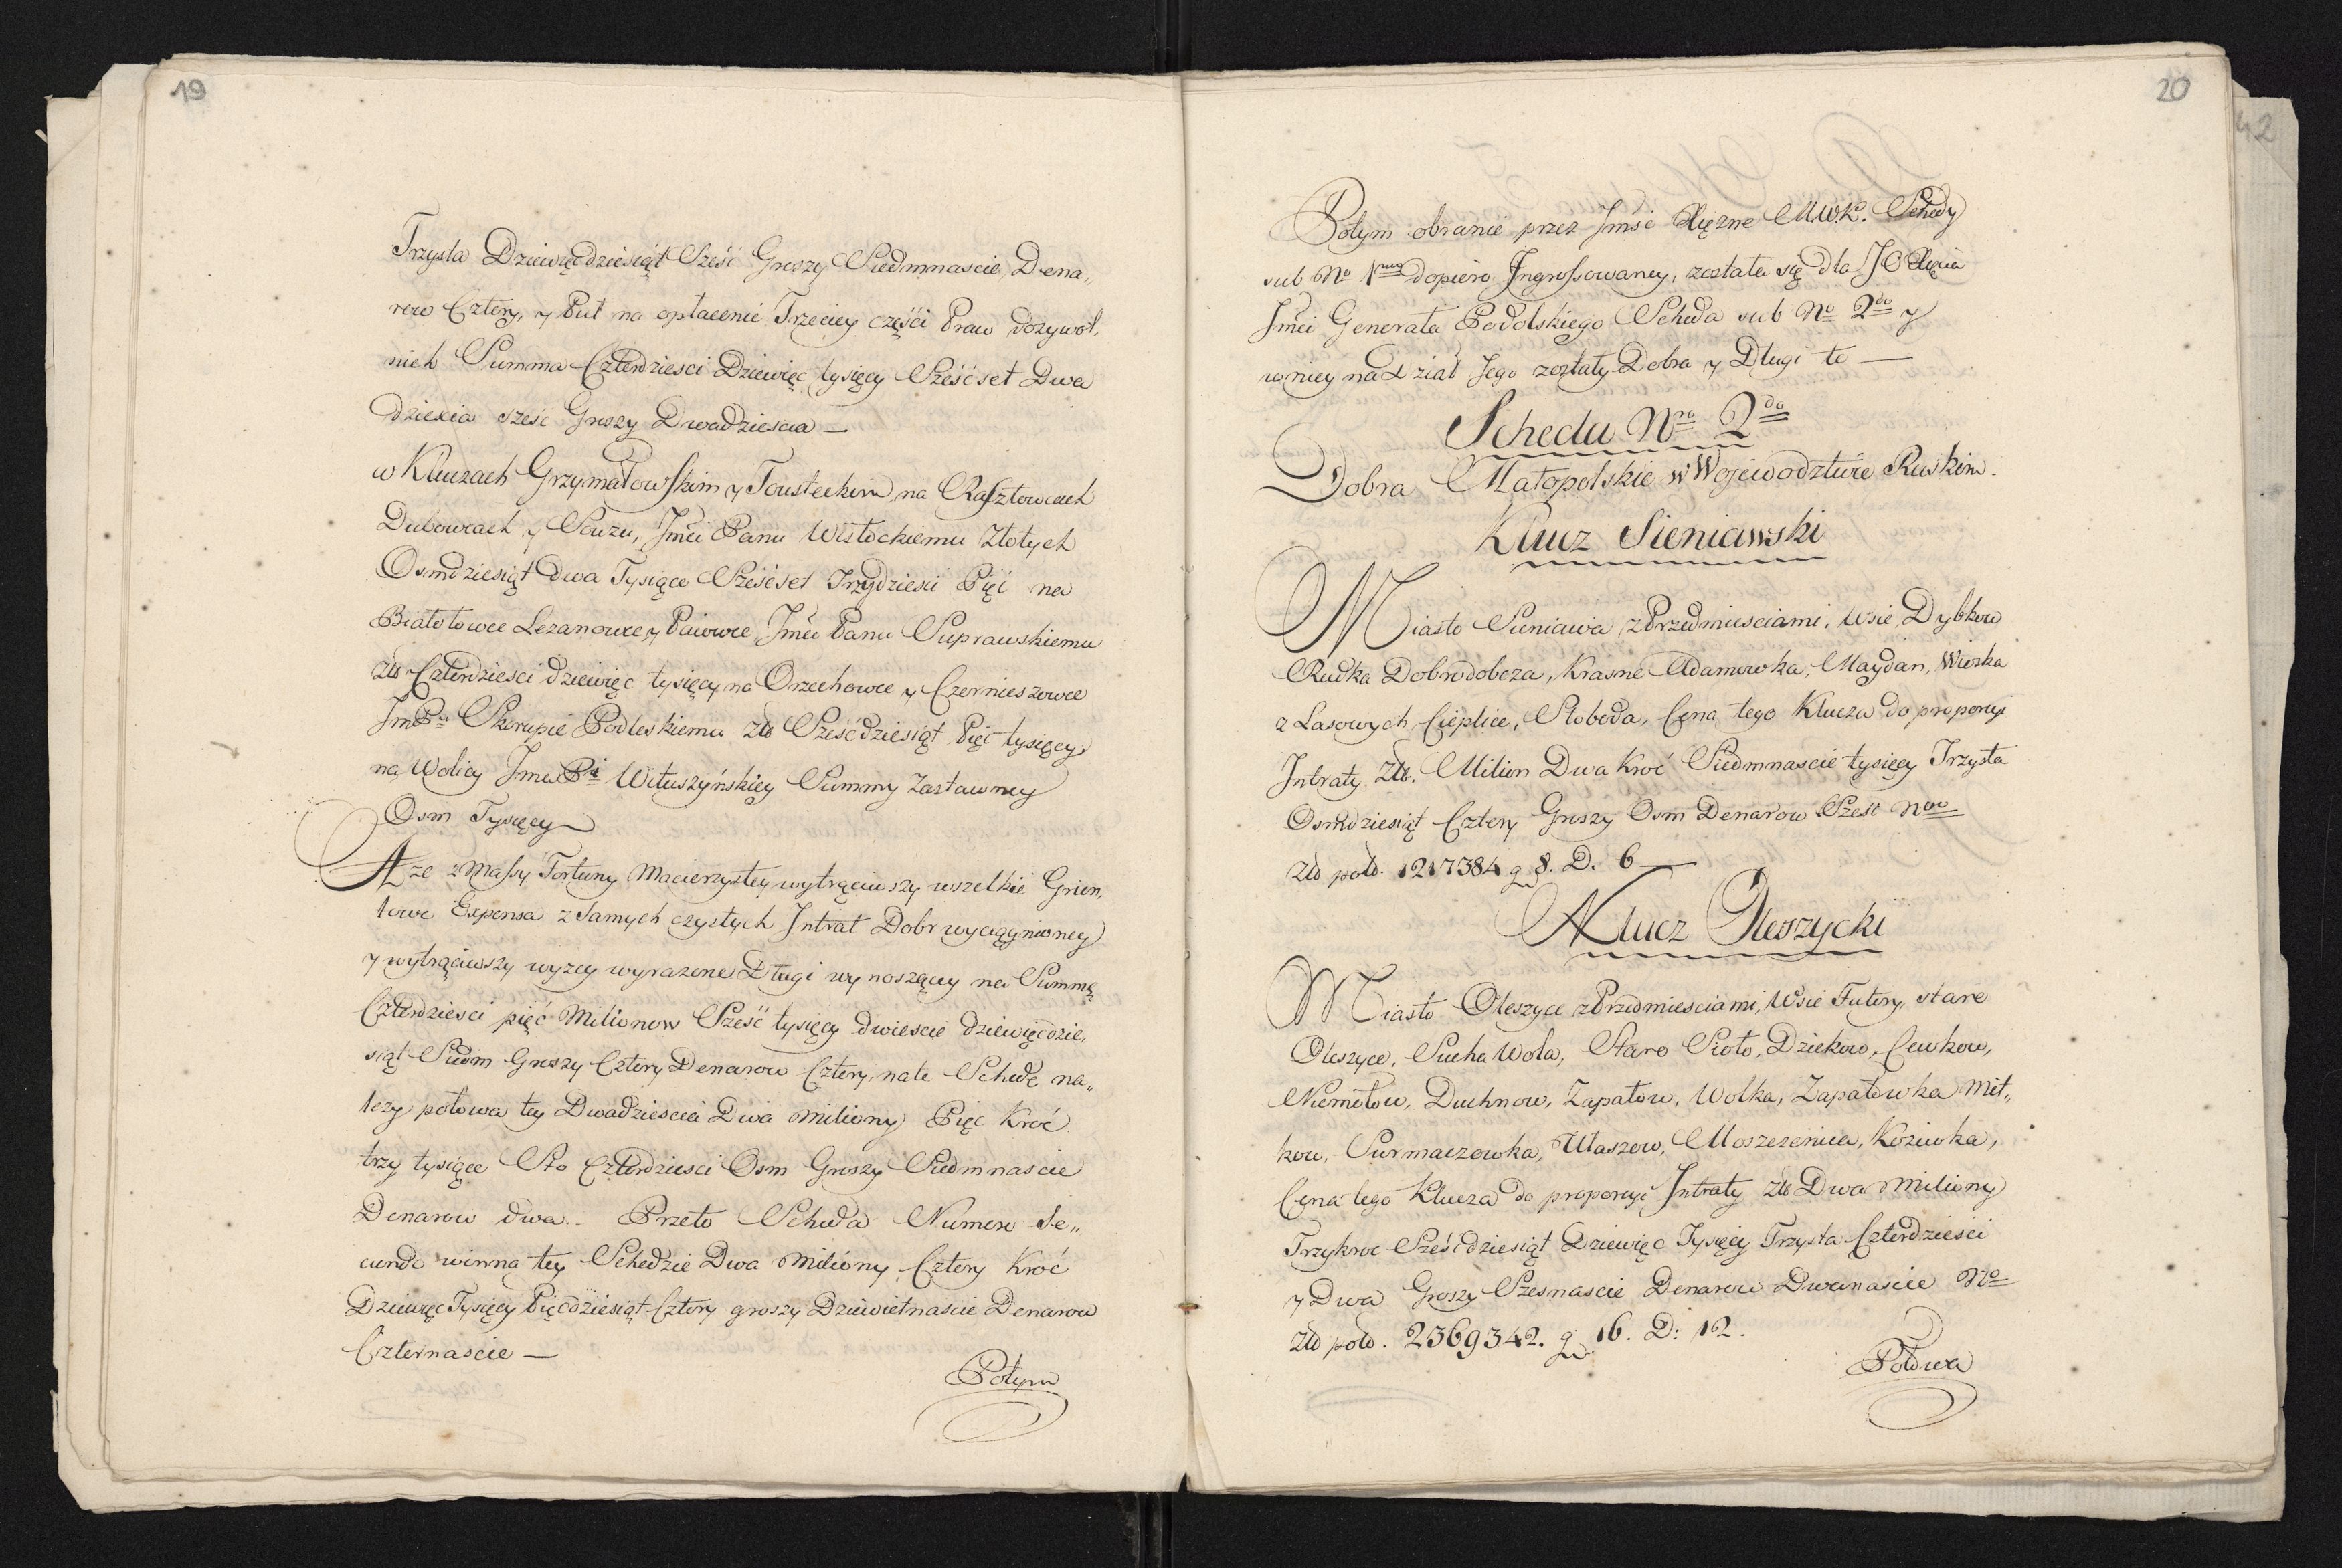 19
Trzysta Dziewiędziesiąt Sześć Groszy Siedmnascie, Dena„
row Cztery, y Put na opłacenie Trzeciey części Praw dożywot.
nich Summa Czterdziesci Dziewięc tysięcy Sześćset Dwa
dziescia sześc Groszy Dwadziescia —
w Kluczach Grzymałowskim y Tousteckim, na Rasztowcach
Dubowcach y Sauzu, Jmći Panu Wisłockiemu Złotych
Osmdziesiąt Dwa Tysiące Sześćset Trzydziesci Pięć na
Białołowce Lezanowce y Paiowce Jmći Panu Suprawskiemu
Złł Czterdziesci dziewięc tysięcy na Orzechowce y Czernieszowce
JmPu Skrupie Podleskiemu Złł Sześćdziesiąt Pięc tysięcy,
na Wolicy Jmći Pi Wituszyńskiey Summy Zastawney
Osm Tysięcy
A że z Massy Fortuny Macierzystey wytrąciwszy wszelkie Grun„
towe Expensa z Samych czystych Intrat Dobr wyciągnioney
y wytrąciwszy wyzey wyrazone Długi wynoszącey na Summę
Czterdziesci pięć Milionow Sześć tysięcy dwiescie dziewięcdzie„
siąt Siedm Groszy Cztery Denarow Cztery, na te Schedę na„
lezy połowa tey Dwadziescia Dwa miliony Pięc Kroć
trzy tysiące Sto Czterdziesci Osm Groszy Siedmnascie
Denarow dwa.– Przeto Scheda Numero Se„
cundo winna tey Schedzie Dwa Miliony Cztery Kroć
Dziewięc Tysięcy Pięcdziesiąt Cztery groszy Dziewietnascie Denarow
Czternascie —
Potym
20
42
Potym obranie przez Jmść Xiężne M.W.K. Schedy
sub No 1mo dopiero Ingrossowaney, została się dla JO Xięcia
Jmći Generała Podolskiego Scheda sub No 2do y
w niey na dział Jego zostały Dobra y Długi te —
Scheda Nro 2do
Dobra Małopolskie w Wojewodztwie Ruskim.
Klucz Sieniawski
Miasto Sieniawa z Przedmiesciami, Wsie, Dybkow
Rudka Dobrodobcza, Krasne Adamowka, Maydan, Wioska
z Lasowych Cieplice, Słoboda, Cena tego Klucza do proporcyi
Intraty Złł. Milion Dwa Kroć Siedmnascie tysięcy Trzysta
Osmdziesiąt Cztery Groszy Osm Denarow Sześć Nro
Złł pols. 1217384 g 8. D. 6 —
Klucz Oleszycki
Miasto Oleszyce z Przedmiesciami, Wsie Futory, stare
Oleszyce, Sucha Wola, Stare Sioło, Dzikow, Cewkow,
Niemstow, Duchnow, Zapałow, Wolka, Zapałowka Mit„
kow, Surmaczowka, Ułaszow, Moszczenica, Koziwka,
Cena tego Klucza do proporcyi Intraty Złł Dwa Miliony
Trzykroc Sześćdziesiąt Dziewięc Tysięcy Trzysta Czterdziesci
y Dwa Groszy Szesnascie Denarow Dwanascie No
Złł pols. 2369342. g 16. D: 12.
Połowa